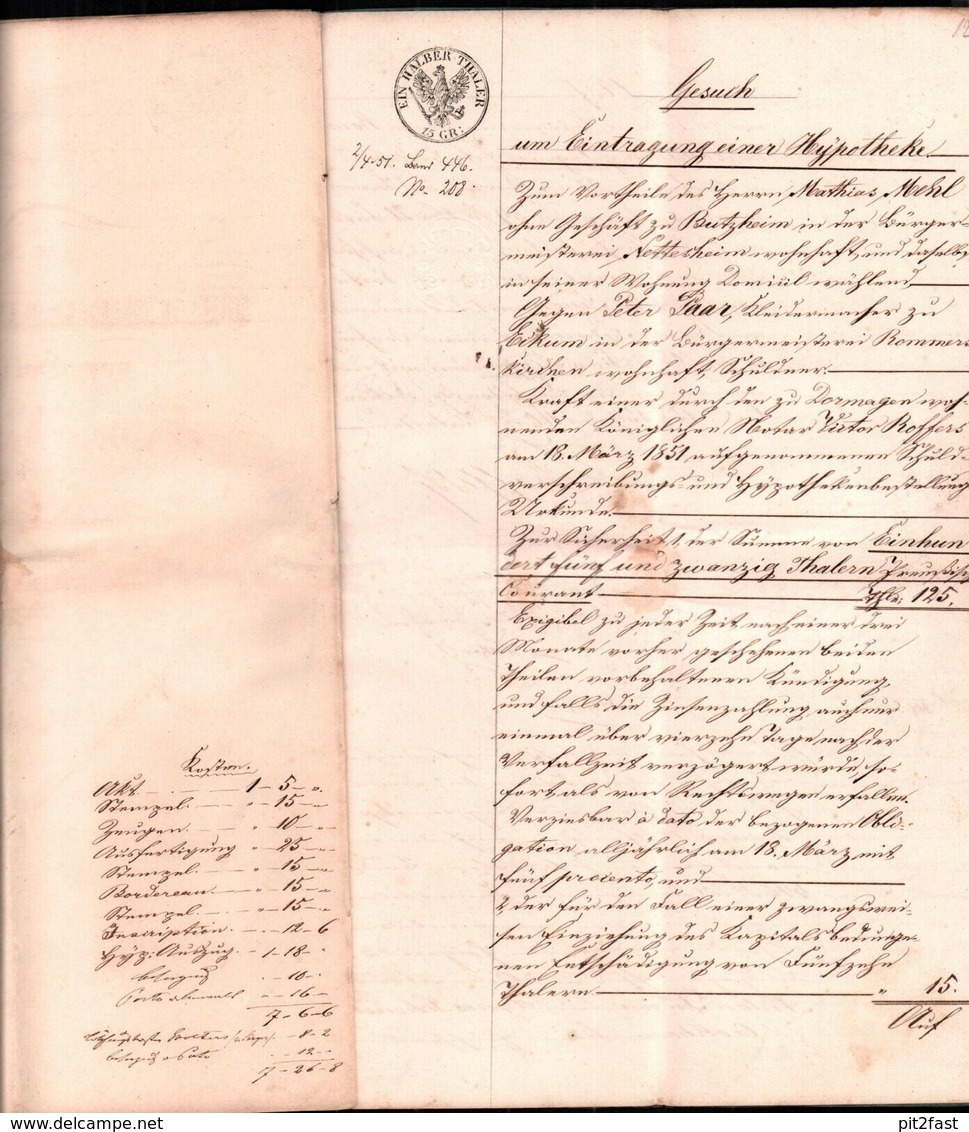 EIN HALBER THALER
15 GR:
2/4-51. Band 446.
No. 208.
Gesuch
um Eintragung einer Hÿpotheke.
Zum Vortheile des Herrn Mathias Mehl
ohne Geschäft zu Butzheim in der Bürger-
meisterei Nettesheim wohnhaft, und daselbst
in seiner Wohnung Domicil wählend
Gegen Peter Paar, Kleidermacher zu
Eckum in der Bürgermeisterei Rommers
kirchen wohnhaft, Schuldner.
Kraft einer durch den zu Dormagen woh-
nenden Königlichen Notar Victor Roffers
am 18. März 1851 aufgenommenen Schuld-
verschreibungs- und Hÿpothekenbestellungs
Urkunde.
Zur Sicherheit 1, der Summe von Einhun
dert fünf und zwanzig Thalern Preußisch
Courant Thlr. 125.
Exigibel zu jeder Zeit nach einer drei
Monate vorher geschehenen beiden
Theilen vorbehaltenen Kündigung,
und falls die Zinsenzahlung auch nur
einmal über vierzehn Tage nach der
Verfallzeit verzögert würde, so-
fort als von Rechtswegen erfallen.
Verzinsbar à dato der bezogenen Obli-
gation alljährlich am 18. März mit
fünf procento, und
2, der für den Fall einer zwangswei-
sen Einziehung des Kapitals bedunge-
nen Entschädigung von Fünfzehn
Thalern " 15.
Auf
Kosten.
Akt. 1 - 5 - "
Stempel. " - 15 - "
Zeugen. " - 10 - "
Ausfertigung " - 25 - "
Stempel. " - 15 - "
Bordereau. " - 15 - "
Stempel. " - 15 - "
Inscription. - 12 - 6
Hÿp: Auszug. - 1 - 18 - "
- 10 -
Porto - 16 -
7 - 6 - 6
- 8 - 2
- 12 -
7 - 26 - 8
pit2fast